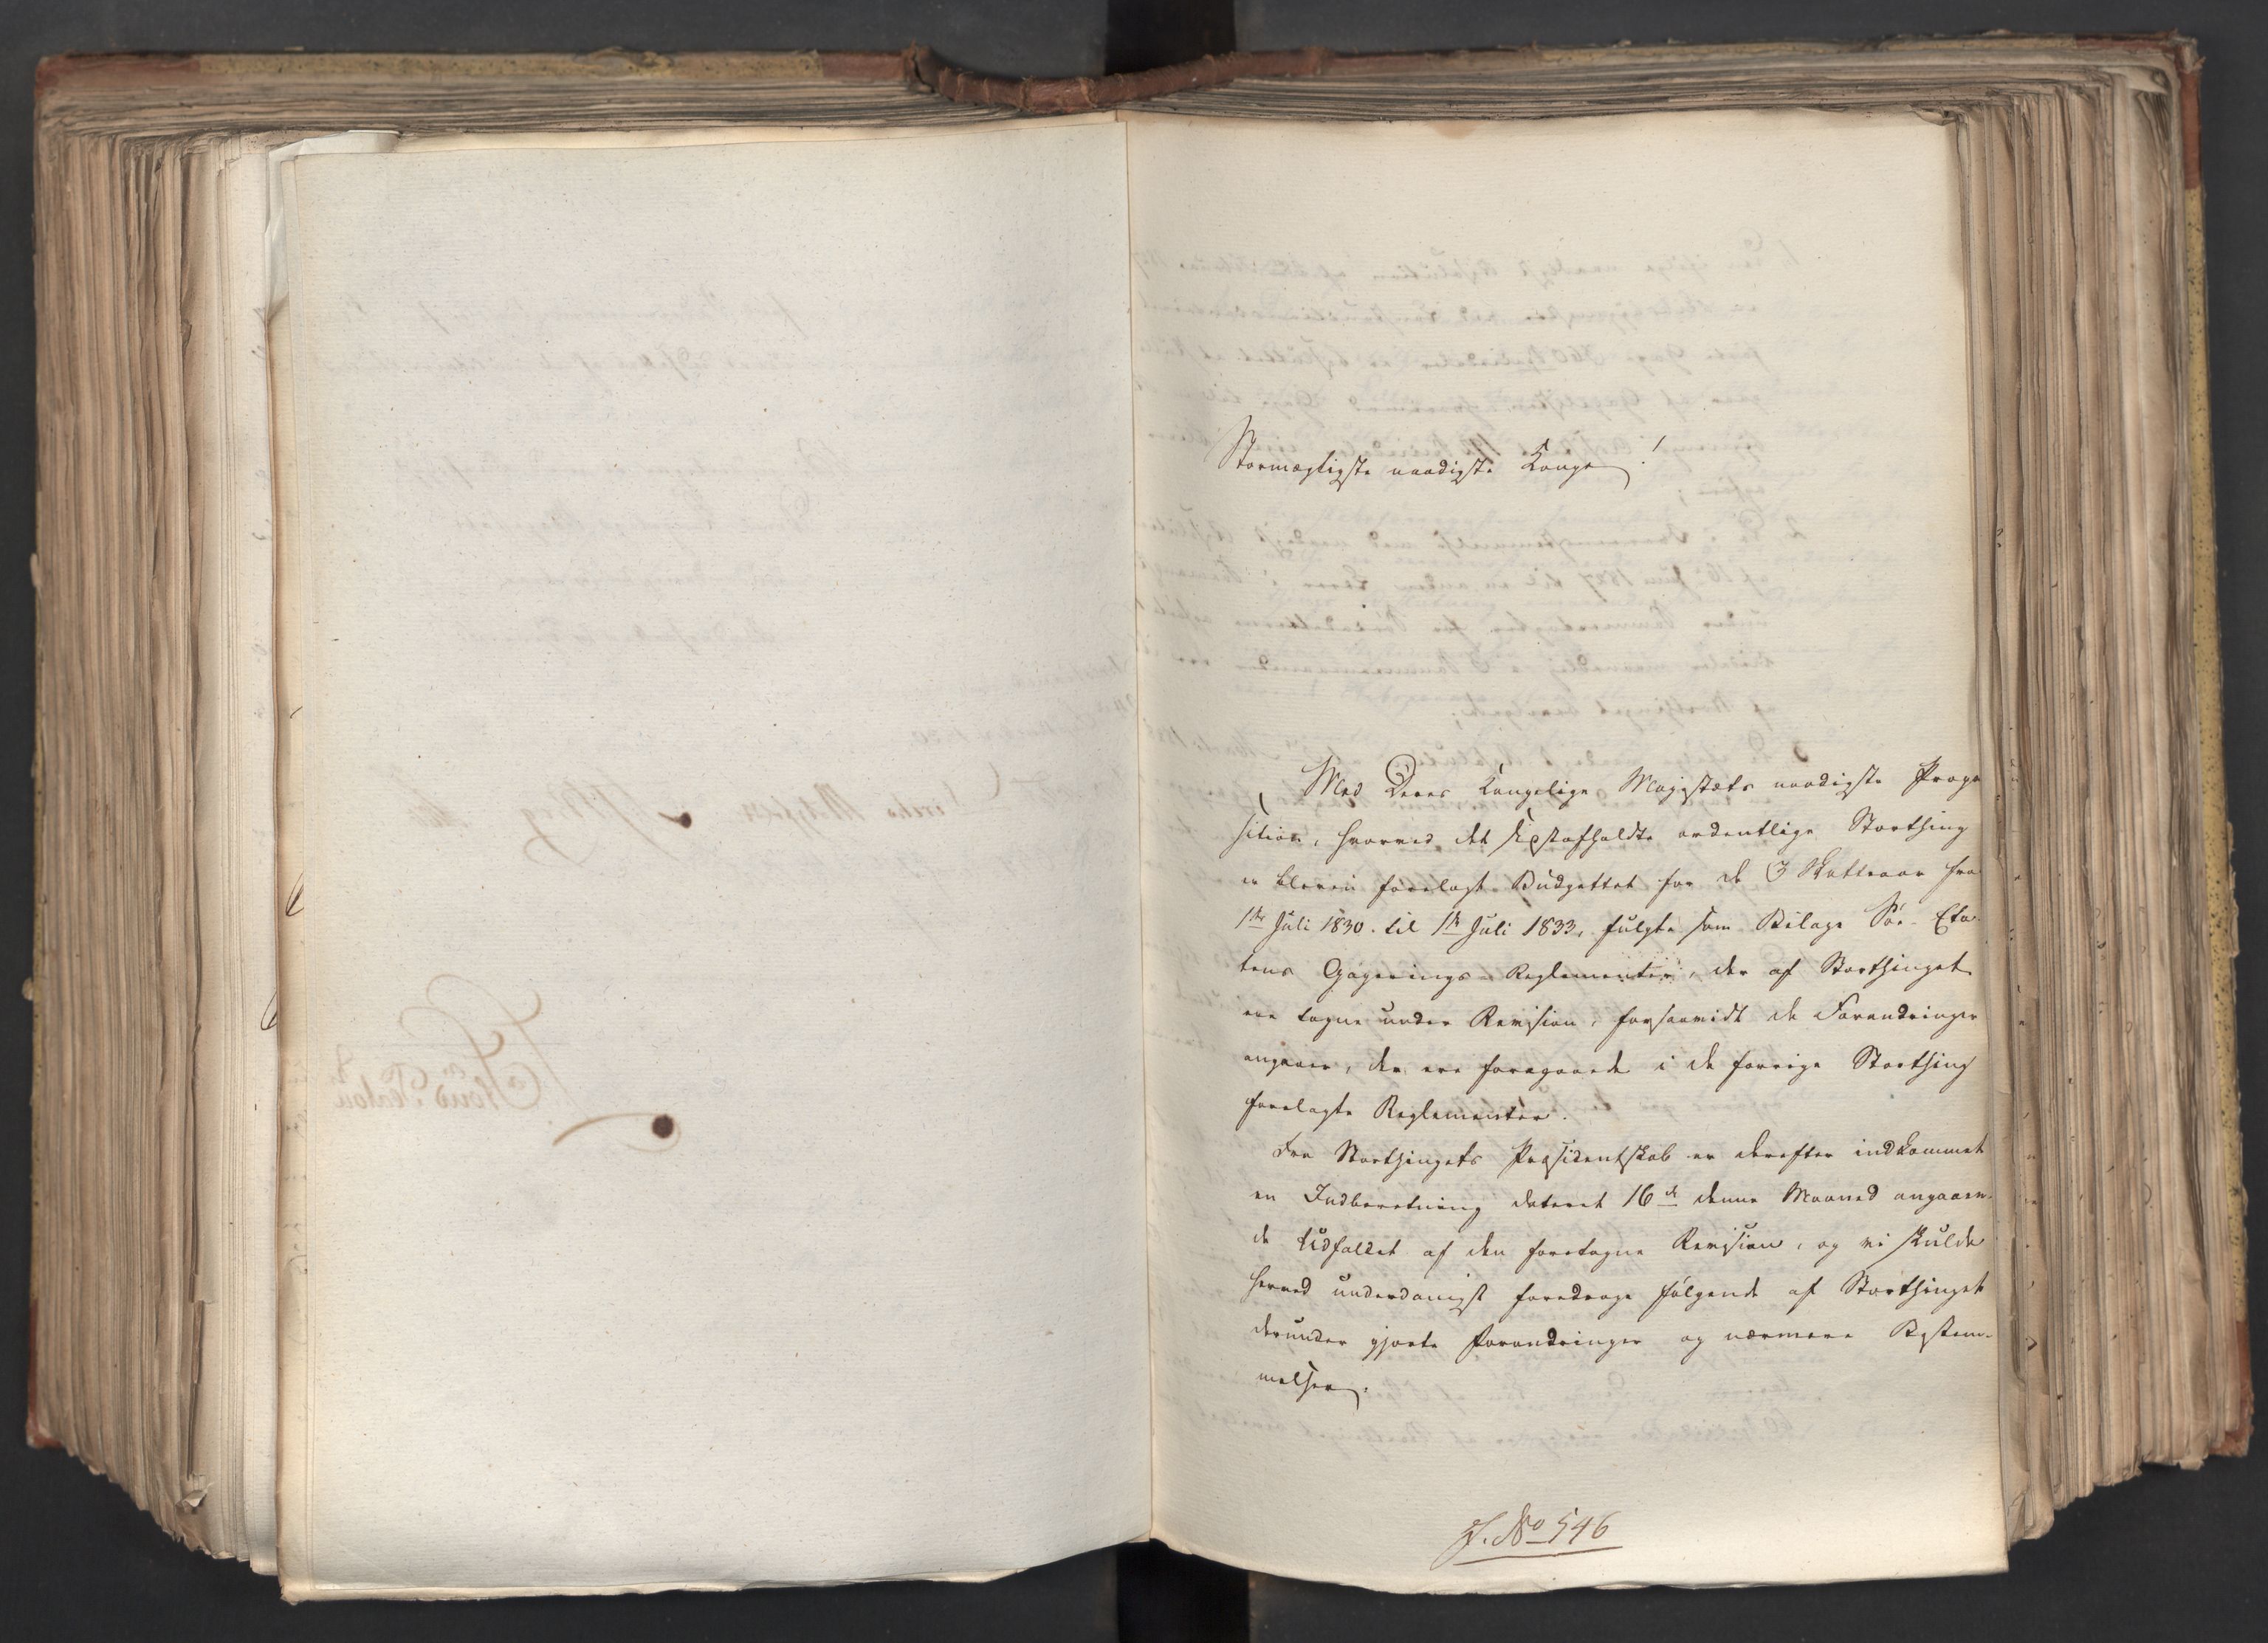 Stormægtigste naadigste Konge!
Med Deres Kongelige Majestæts naadigste Propo-
sition, hvorved det sidstafholdte ordentlige Storthing
er bleven forelagt Budgettet for de 3 Skatteaar fra
1ste Juli 1830. til 1ste Juli 1833, fulgte som Bilage Søe-Eta-
tens Gagerings-Reglementer, der af Storthinget
ere tagne under Revision, forsaavidt de Forandringer
angaaer, der ere foregaaede i de forrige Storthing
forelagte Reglementer.
Fra Storthingets Præsidentskab er derefter indkommet
en Indberetning dateret 16de denne Maaned angaaen-
de Udfaldet af den foretagne Revision, og vi skulde
herved underdanigst foredrage følgende af Storthinget
derunder gjorte Forandringer og nærmere Bestem-
melser.
J. No 546